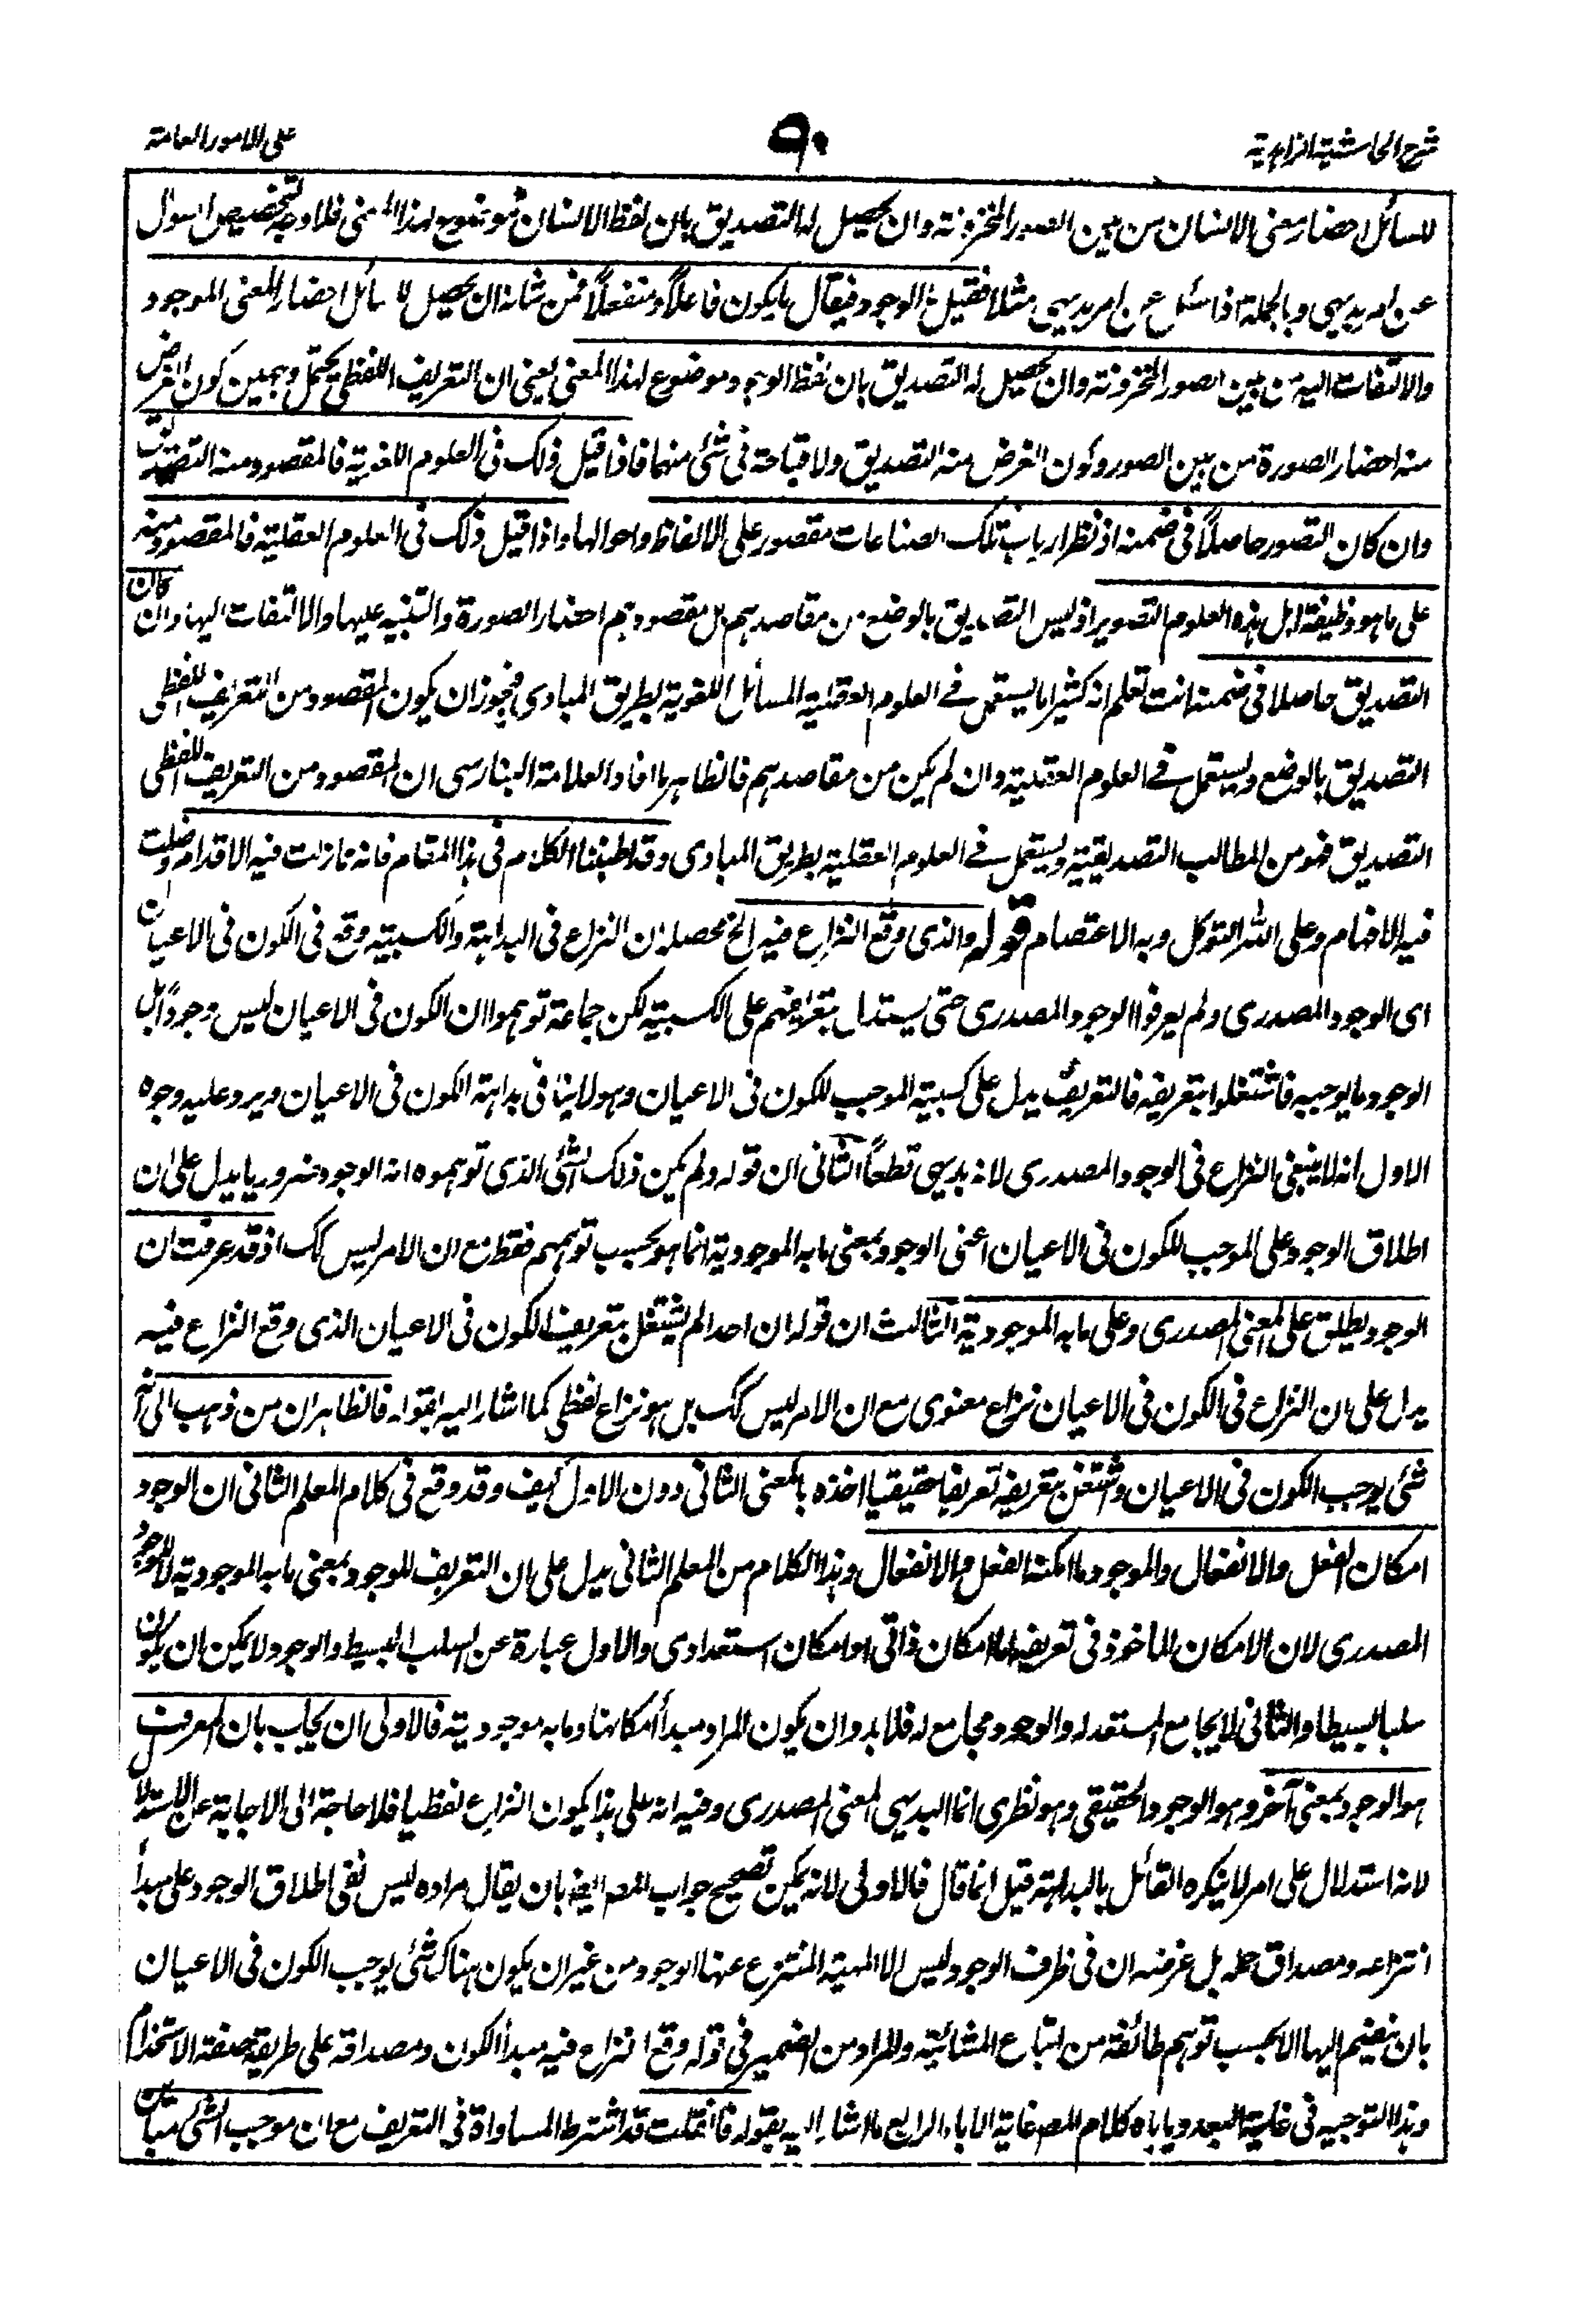 شرح الحاشیة الزاہدیة
۹۰
علی الامور العامة
للسائل احضار معنی الانسان من بین الصور المخزونة وان یحصل له التصدیق بان لفظ الانسان موضوع لهذا المعنی فلا وجه لتخصیص السوال
عن امر بدیهی وبالجملة اذا سئل عن امر بدیهی مثلا فقیل ما الوجود فیقال ما یکون فاعلاً او منفعلاً فمن شانه ان یحصل للسائل احضار المعنی الموجود
والالتفات الیه من بین الصور المخزونة وان یحصل له التصدیق بان لفظ الوجود موضوع لهذا المعنی یعنی ان التعریف اللفظی یحتمل وجهین کون الغرض
منه احضار الصورة من بین الصور وکون الغرض منه التصدیق ولا قباحة فی شئ منهما فاذا قیل ذلک فی العلوم اللغویة فالمقصود منه التصدیق
وان کان التصور حاصلاً فی ضمنه اذ نظر ارباب تلک الصناعات مقصور علی الالفاظ واحوالها واذا قیل ذلک فی العلوم العقلیة فالمقصود منه
علی ما هو وظیفة اهل هذه العلوم التصویر اذ لیس التصدیق بالوضع من مقاصدهم بل مقصودهم احضار الصورة والتنبیه علیها والالتفات الیها وان کان
التصدیق حاصلا فی ضمنه انت تعلم انه کثیرا ما یستعمل فی العلوم العقلیة المسائل اللغویة بطریق المبادی فیجوز ان یکون المقصود من التعریف اللفظی
التصدیق بالوضع ویستعمل فی العلوم العقلیة وان لم یکن من مقاصدهم فالظاهر ما افاد العلامة البنارسی ان المقصود من التعریف اللفظی
التصدیق فهو من المطالب التصدیقیة ویستعمل فی العلوم العقلیة بطریق المبادی وقد اطنبنا الکلام فی هذا المقام فانه مما زلت فیه الاقدام وضلت
فیه الافهام وعلی الله التوکل وبه الاعتصام قوله والذی وقع النزاع فیه الخ محصله ان النزاع فی البداهة والکسبیة وقع فی الکون فی الاعیان
ای الوجود المصدری ولم یعرفوا الوجود المصدری حتی یستدل بتعریفهم علی الکسبیة لکن جماعة توهموا ان الکون فی الاعیان لیس وجوداً بل
الوجود ما یوجبه فاشتغلوا بتعریفه فالتعریف یدل علی کسبیة الموجب للکون فی الاعیان وهو لا ینافی بداهة الکون فی الاعیان ویرد علیه وجوه
الاول انه لا ینبغی النزاع فی الوجود المصدری لانه بدیهی قطعاً الثانی ان قوله ولم یکن ذلک الشئ الذی توهموه انه الوجود ضروریا یدل علی ان
اطلاق الوجود علی الموجب للکون فی الاعیان اعنی الوجود بمعنی ما به الموجودیة انما هو بحسب توهمهم فقط مع ان الامر لیس کک اذ قد عرفت ان
الوجود یطلق علی المعنی المصدری وعلی ما به الموجودیة الثالث ان قوله ان احدا لم یشتغل بتعریف الکون فی الاعیان الذی وقع النزاع فیه
یدل علی ان النزاع فی الکون فی الاعیان نزاع معنوی مع ان الامر لیس کک بل هو نزاع لفظی کما اشار الیه بقوله فالظاهر ان من ذهب الی انه
شئ یوجب الکون فی الاعیان واشتغل بتعریفه تعریفا حقیقیا اخذه بالمعنی الثانی دون الاول کیف وقد وقع فی کلام المعلم الثانی ان الوجود
امکان الفعل والانفعال والموجود ما امکنه الفعل والانفعال وهذا الکلام من المعلم الثانی یدل علی ان التعریف للوجود بمعنی ما به الموجودیة لا للوجود
المصدری لان الامکان الماخوذ فی تعریفه اما امکان ذاتی او امکان استعدادی والاول عبارة عن السلب البسیط والوجود لا یمکن ان یکون
سلبا بسیطا والثانی لا یجامع المستعد له والوجود مجامع له فلا بد وان یکون المراد مبدأ امکانها وما به موجودیته فالاولی ان یجاب بان المعرف
هو الوجود بمعنی آخر وهو الوجود الحقیقی وهو نظری انما البدیهی المعنی المصدری وفیه انه علی هذا یکون النزاع لفظیا فلا حاجة الی الاجابة عن الاستدلال
لانه استدلال علی امر لا ینکره القائل بالبداهة قیل انما قال فالاولی لانه یمکن تصحیح جواب المصه ایضا بان یقال مراده لیس نفی اطلاق الوجود علی مبدأ
انتزاعه ومصداق حمله بل غرضه ان فی ظرف الوجود لیس الا المهیة المنتزع عنها الوجود من غیر ان یکون هناک شئ یوجب الکون فی الاعیان
بان ینضم الیها الا بحسب توهم طائفة من اتباع المشائیة والمراد من الضمیر فی قوله وقع النزاع فیه مبدأ الکون ومصداقه علی طریقة صنعة الاستخدام
وهذا التوجیه فی غایة البعد ویاباه کلام المصه غایة الاباء الرابع ما اشار الیه بقوله فان قلت قد اشترط المساواة فی التعریف مع ان موجب الشئ مباین